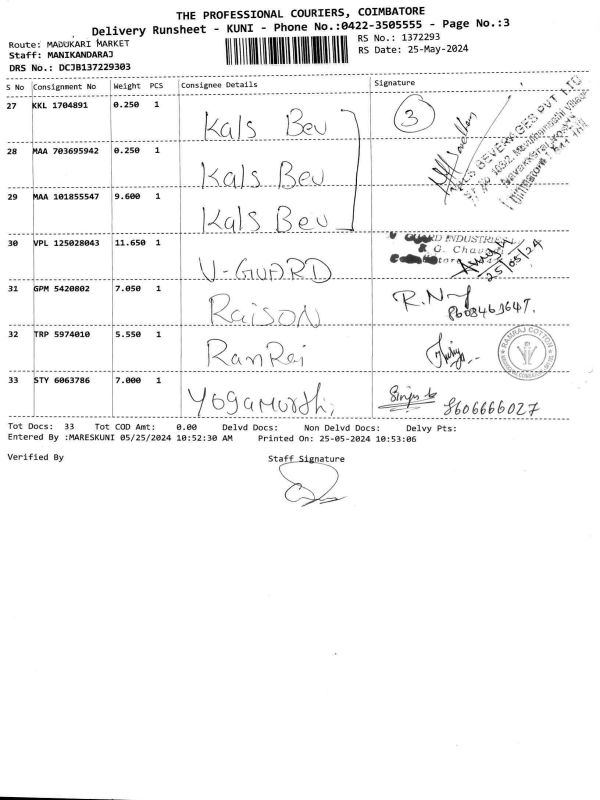 THE PROFESSIONAL COURIERS, COIMBATORE
Delivery Runsheet - KUNI - Phone No.:0422-3505555 - Page No.:3
Route: MADUKARI MARKET
RS No.: 1372293
Staff: MANIKANDARAJ
RS Date: 25-May-2024
DRS No.: DCJB137229303
S No Consignment No Weight PCS Consignee Details Signature
27 KKL 1704891 0.250 1 Kals Bev 3
28 MAA 703695942 0.250 1 Kals Bev
29 MAA 101855547 9.600 1 Kals Bev
BEVERAGES PVT LTD
30 VPL 125028043 11.650 1 V-GUARD
GUARD INDUSTRIES
25/05/24
31 GPM 5420802 7.050 1 Raison
32 TRP 5974010 5.550 1 RamRaj
RAMRAJ COTTON
33 STY 6063786 7.000 1 Yogamurthi 8606666027
Tot Docs: 33 Tot COD Amt: 0.00 Delvd Docs: Non Delvd Docs: Delvy Pts:
Entered By :MARESKUNI 05/25/2024 10:52:30 AM Printed On: 25-05-2024 10:53:06
Verified By Staff Signature